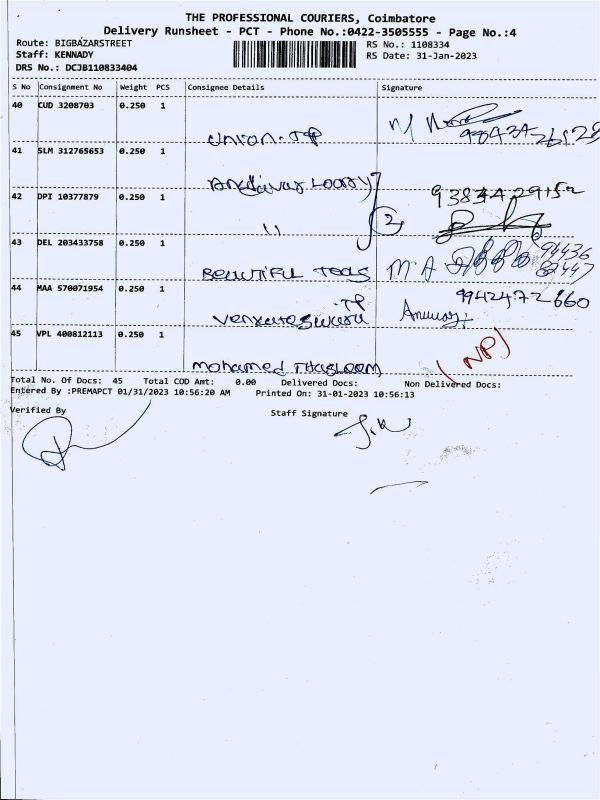 THE PROFESSIONAL COURIERS, Coimbatore
Delivery Runsheet - PCT - Phone No.:0422-3505555 - Page No.:4
Route: BIGBAZARSTREET RS No.: 1108334
Staff: KENNADY RS Date: 31-Jan-2023
DRS No.: DCJB110833404
S No Consignment No Weight PCS Consignee Details Signature
40 CUD 3208703 0.250 1
Union.TP
41 SLM 312765653 0.250 1
42 DPI 10377879 0.250 1
" 2
43 DEL 203433758 0.250 1
BEAUTIFUL TOOLS M A
44 MAA 570071954 0.250 1 9942472660
TP
45 VPL 400812113 0.250 1 (NP)
Mohamed
Total No. Of Docs: 45 Total COD Amt: 0.00 Delivered Docs: Non Delivered Docs:
Entered By :PREMAPCT 01/31/2023 10:56:20 AM Printed On: 31-01-2023 10:56:13
Verified By Staff Signature